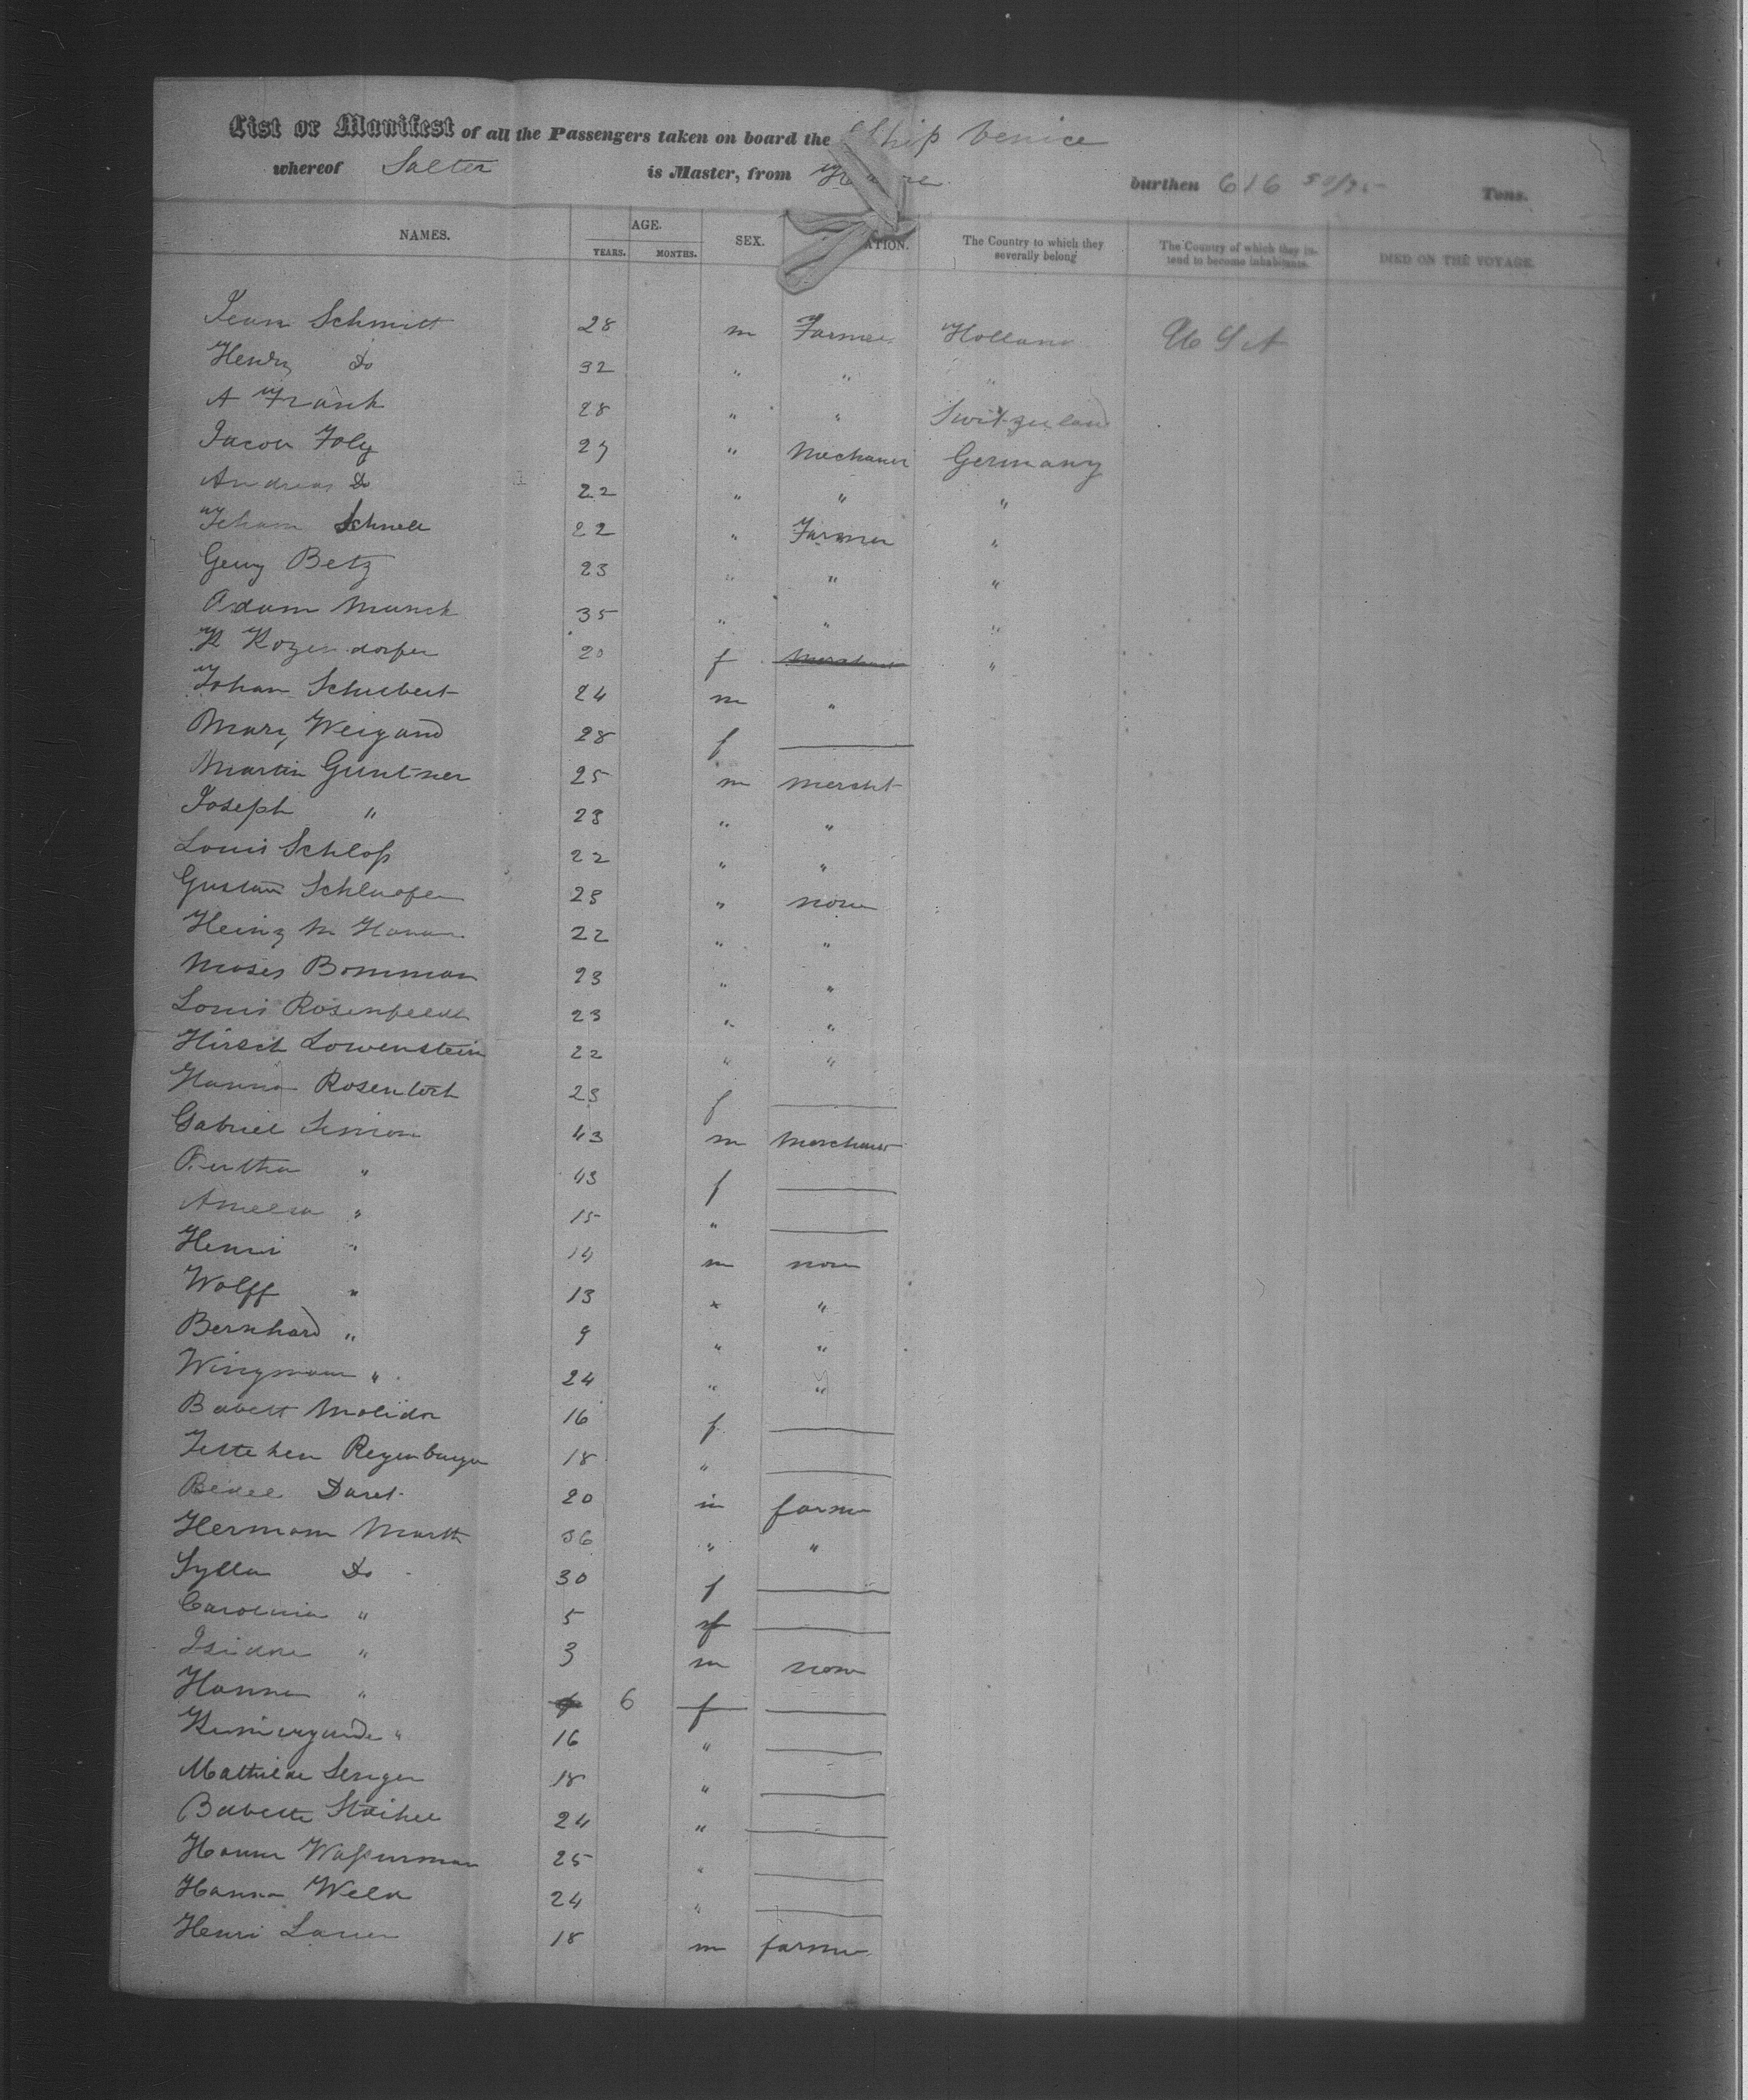 List or Manifest of all the Passengers taken on board the Ship Venice
whereof Salter is Master, from Havre burthen 616 50/95 Tons.
NAMES. AGE. YEARS. MONTHS. SEX. ATION. The Country to which they severally belong The Country of which they intend to become inhabitants. DIED ON THE VOYAGE.
Jean Schmitt 28 m Farmer Holland U S A
Henry Do 32 " " "
A Frank 28 " " Switzerland
Jacob Foly 27 " Mechanic Germany
Andreas Do 22 " " "
Johann Schnell 22 " Farmer "
Georg Betz 23 " " "
Adam Munch 35 " " "
K 20 f Merchant "
Johan Schubert 24 m "
Mary Weigand 28 f
Martin Guntner 25 m Mercht
Joseph " 23 " "
Louis Schloß 22 " "
Gustav 23 " none
Heinz M 22 " "
Moses Bommman 23 " "
Louis Rosenfeldt 23 " "
Hirsch Lowenstein 22 " "
Hanna 23 f
Gabriel Simon 43 m Merchant
Bertha " 43 f
Amelia " 15 "
Henri " 14 m none
Wolff " 13 " "
Bernhard " 9 " "
" 24 " "
Babett Molidor 16 f
Regenburger 18 "
Daret 20 m farmer
Hermann Marth 36 " "
Sylla Do 30 f
Carolina " 5 f
Isidore " 3 m none
Hanna " 6 f
" 16 "
Mathilde 18 "
Babette 24 "
Hanna Waßerman 25 "
Hanna 24 "
Henri 18 m farmer